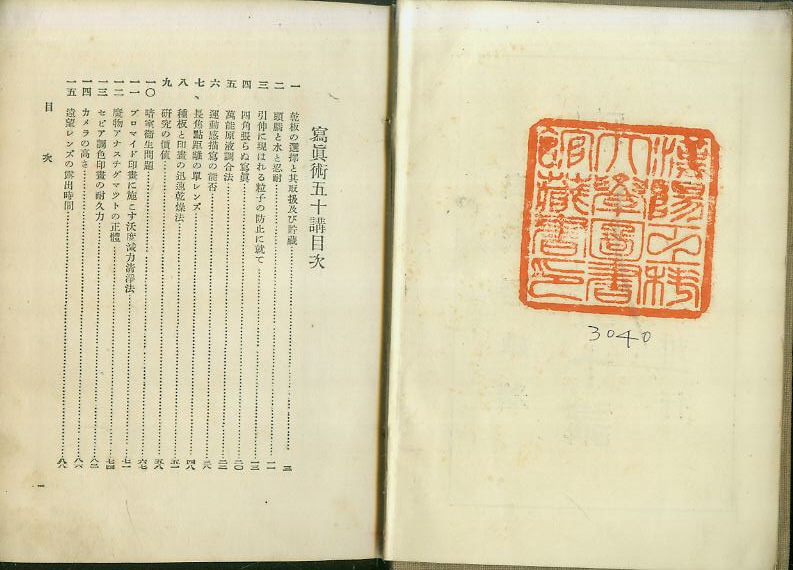 漢陽工科
大學圖書
館藏書印
3040
寫眞術五十講目次
一 乾板の選擇と其取扱及び貯藏 三
二 頭腦と水と忍耐 一一
三 引伸に現はれる粒子の防止に就て 一三
四 四角張らぬ寫眞 二〇
五 萬能原液調合法
六 運動感描寫の能否
七 長焦點距離の單レンズ 四八
八 種板と印畫の迅速乾燥法 五一
九 研究の價値 五八
一〇 暗室衛生問題 六七
一一 ブロマイド印畫に施こす沃度減力淸淨法 七一
一二 廢物アナスチグマツトの正體 七四
一三 セピア調色印畫の耐久力 八二
一四 カメラの高さ 八六
一五 遠望レンズの露出時間 八八
目次 一